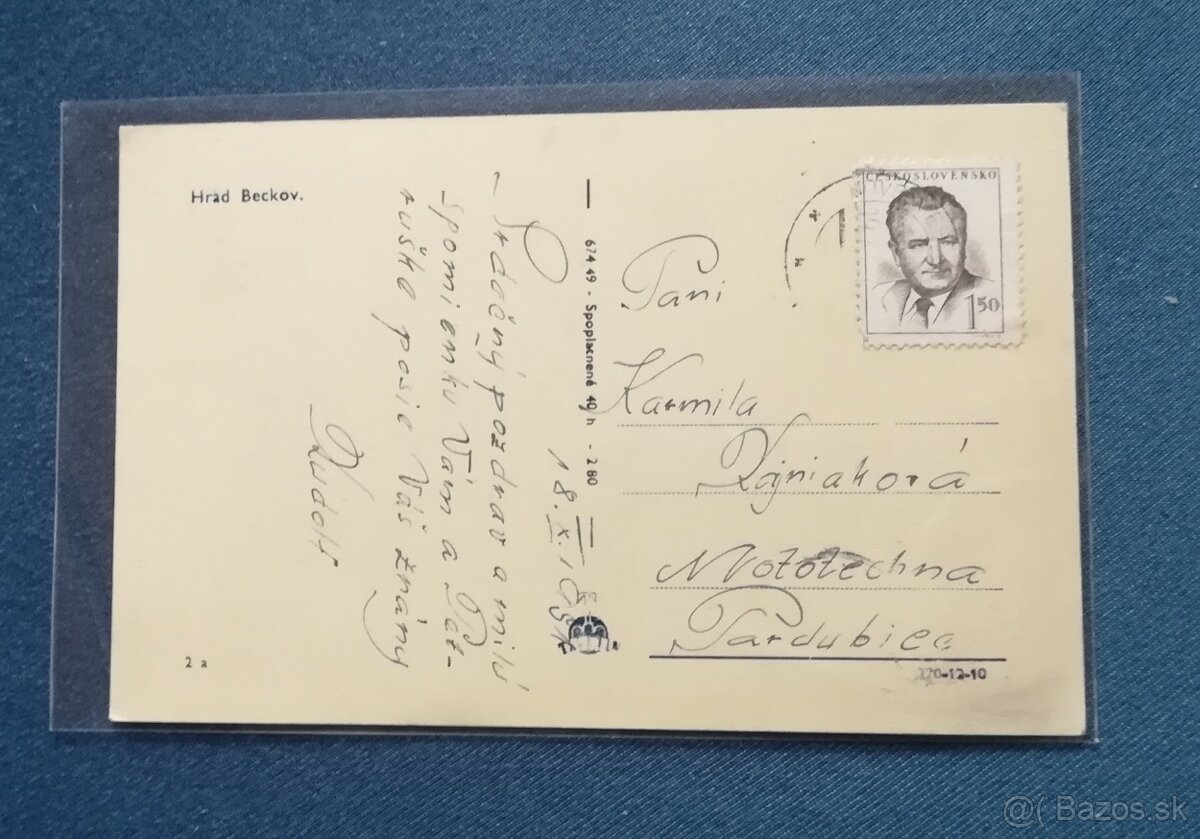 Hrad Beckov.
Srdečný pozdrav a milú
spomienku Vám a Pet-
ruške posie Váš známy
Rudolf
18. X. 195
674 49 - Spoplatnené 49 h - 2 80
ČESKOSLOVENSKO
1 50
Pani
Karmila
Vajniaková
Mototechna
Pardubice
270-12-10
2 a
@( Bazos.sk